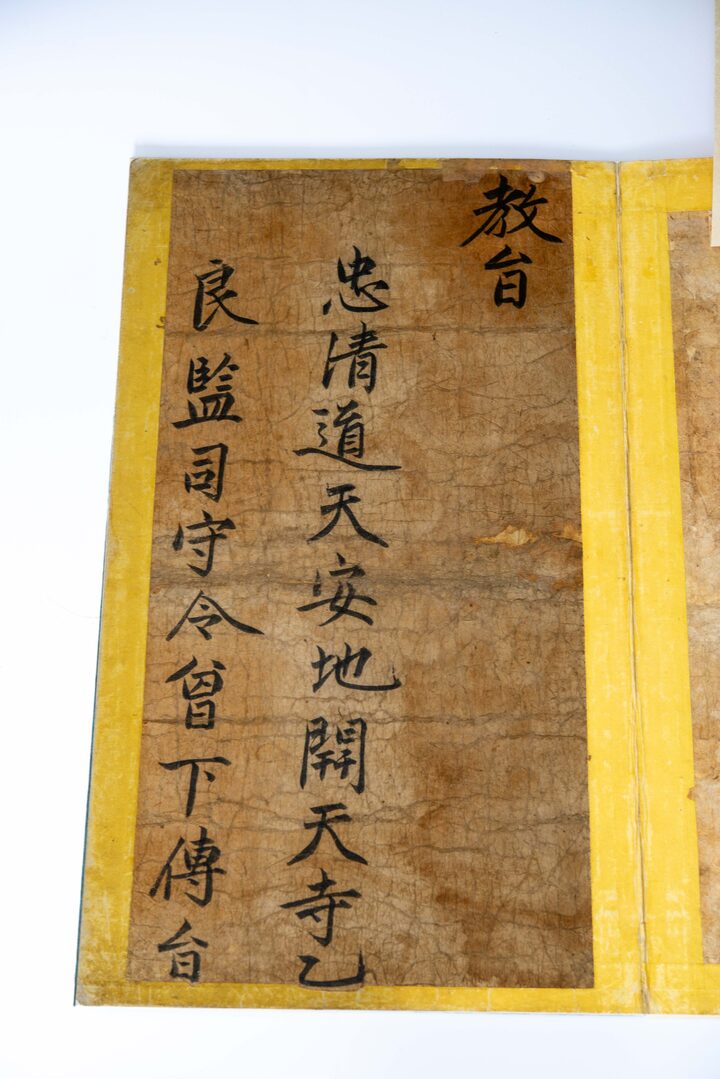 教㫖
忠清道天安地開天寺乙
良監司守令曾下傳㫖